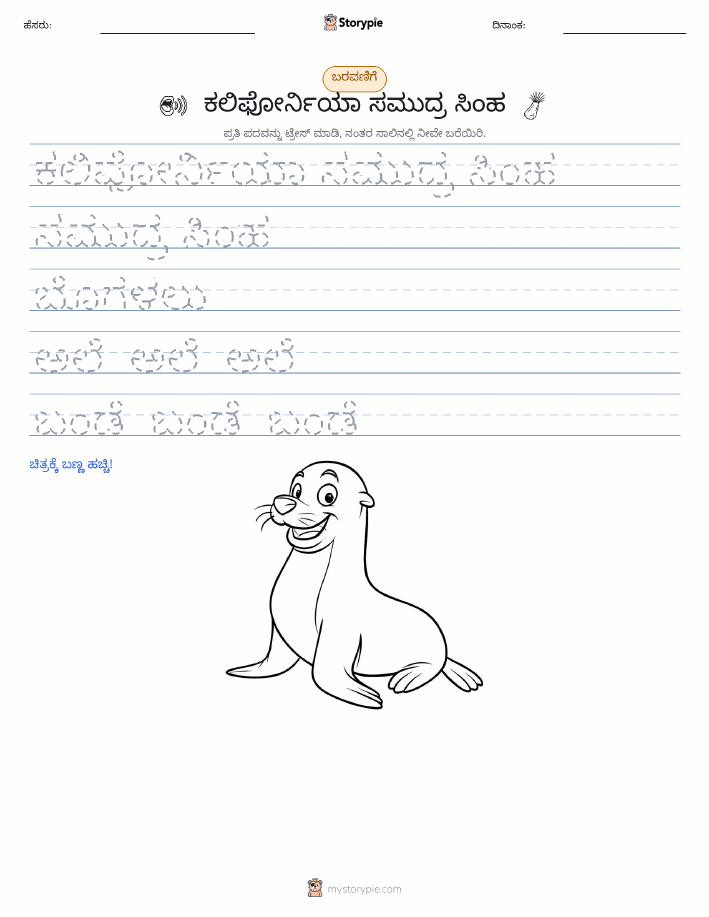 ಹೆಸರು:
Storypie
ದಿನಾಂಕ:
ಬರವಣಿಗೆ
ಕಲಿಫೋರ್ನಿಯಾ ಸಮುದ್ರ ಸಿಂಹ
ಪ್ರತಿ ಪದವನ್ನು ಟ್ರೇಸ್ ಮಾಡಿ, ನಂತರ ಸಾಲಿನಲ್ಲಿ ನೀವೇ ಬರೆಯಿರಿ.
ಕಲಿಫೋರ್ನಿಯಾ ಸಮುದ್ರ ಸಿಂಹ
ಸಮುದ್ರ ಸಿಂಹ
ಬೊಗಳಲು
ಅಲೆ ಅಲೆ ಅಲೆ
ಬಂಡೆ ಬಂಡೆ ಬಂಡೆ
ಚಿತ್ರಕ್ಕೆ ಬಣ್ಣ ಹಚ್ಚಿ!
mystorypie.com